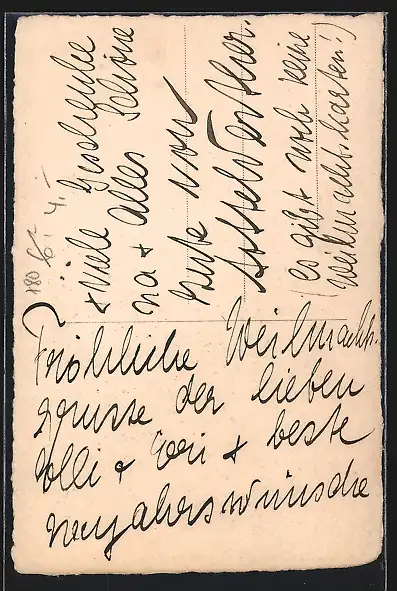 Fröhliche Weihnachts-
grüsse der lieben
Olli + Evi + beste
Neujahrswünsche
+ viele Geschenke
na + alles Schöne
Gute von
Esther.
(es gibt noch keine
Weihnachtskarten!)
180